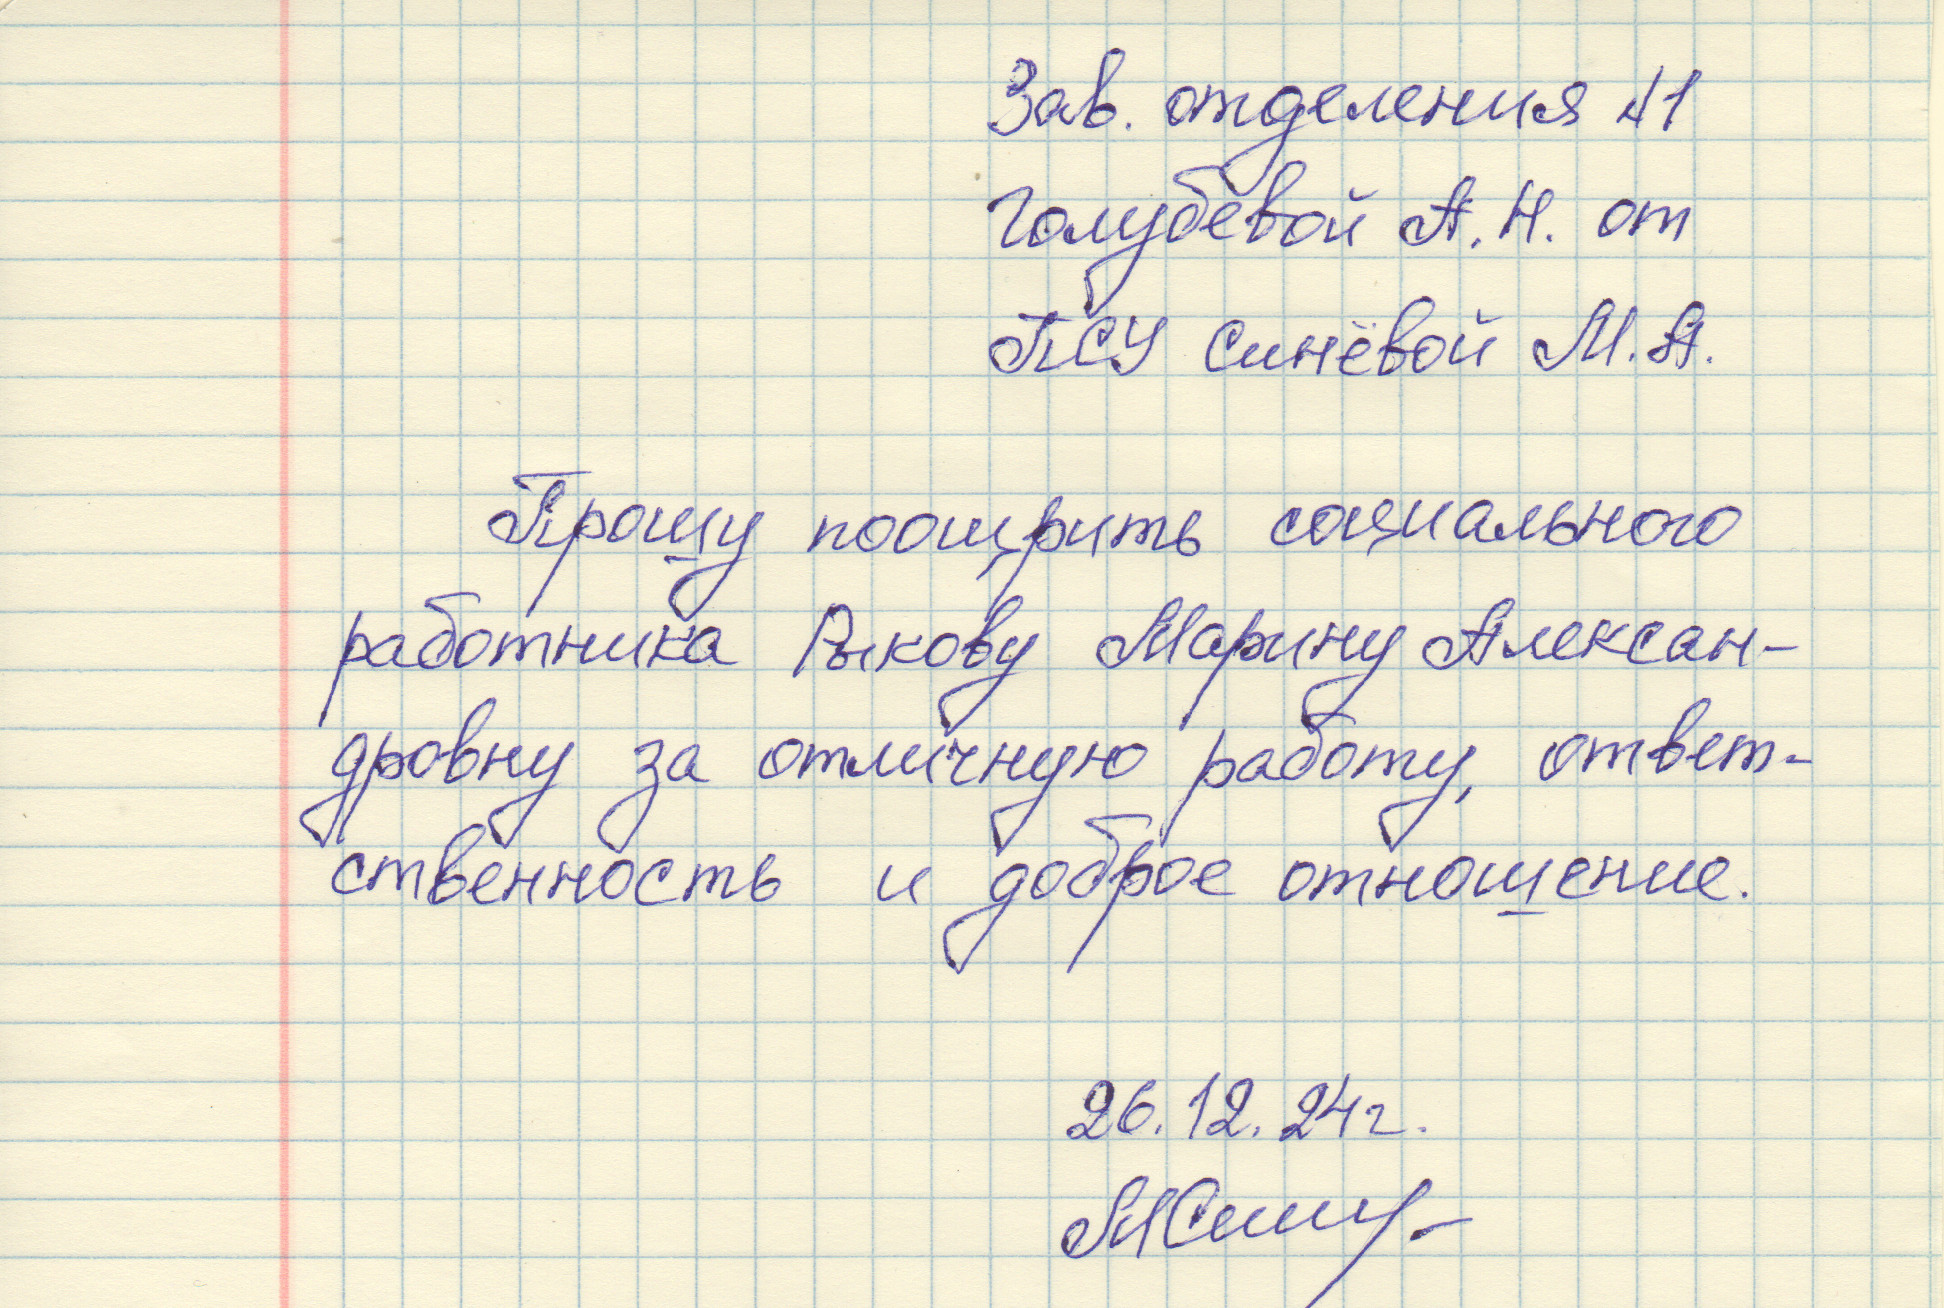 Зав. отделения №1
Голубевой А. Н. от
ПСУ Синёвой М. А.
Прошу поощрить социального
работника Рыкову Марину Алексан-
дровну за отличную работу, ответ-
ственность и доброе отношение.
26. 12. 24г.